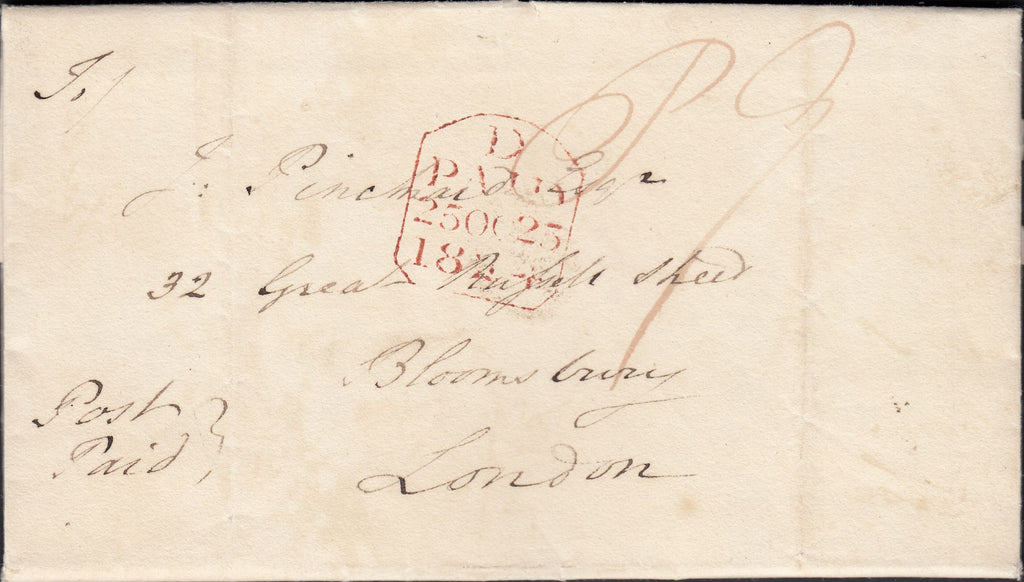 To/
J: Pinchard Esqr
32 Great Russell Street
Bloomsbury
London
Post
Paid
D
PAID
25 OC 25
18
P 9